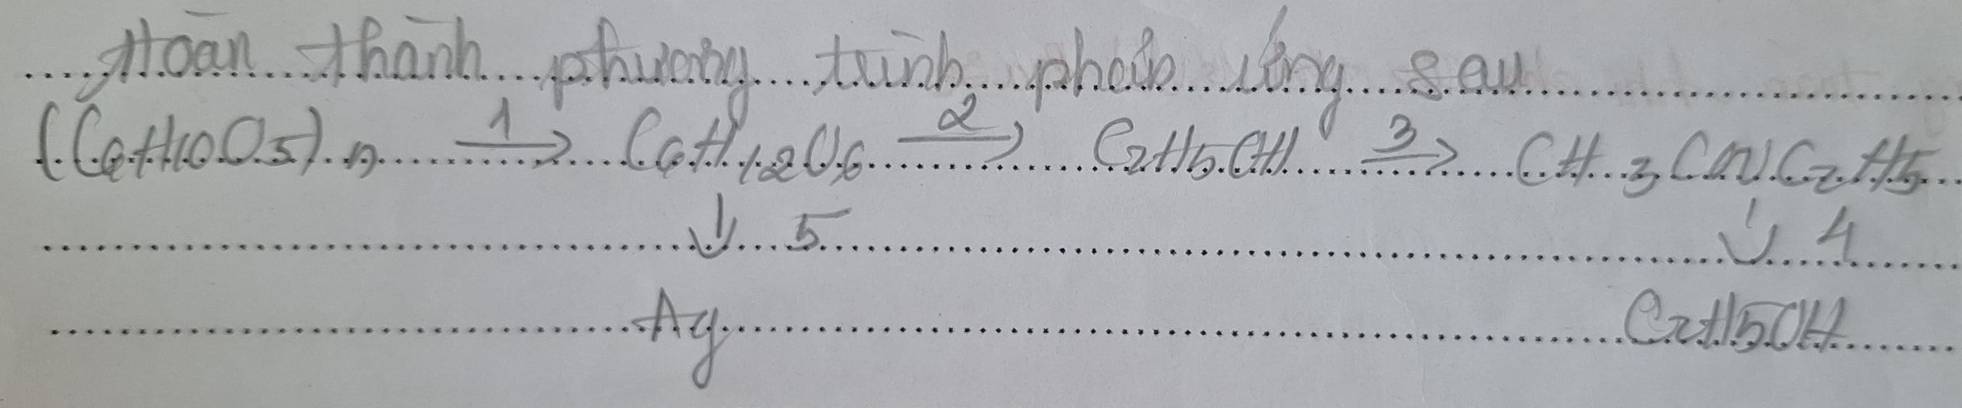 Hoàn thành phương trình phản ứng sau
(C6H10O5)n 1→ C6H12O6 2→ C2H5OH 3→ CH3COOC2H5
↓ 5 ↓ 4
Ag C2H5OH